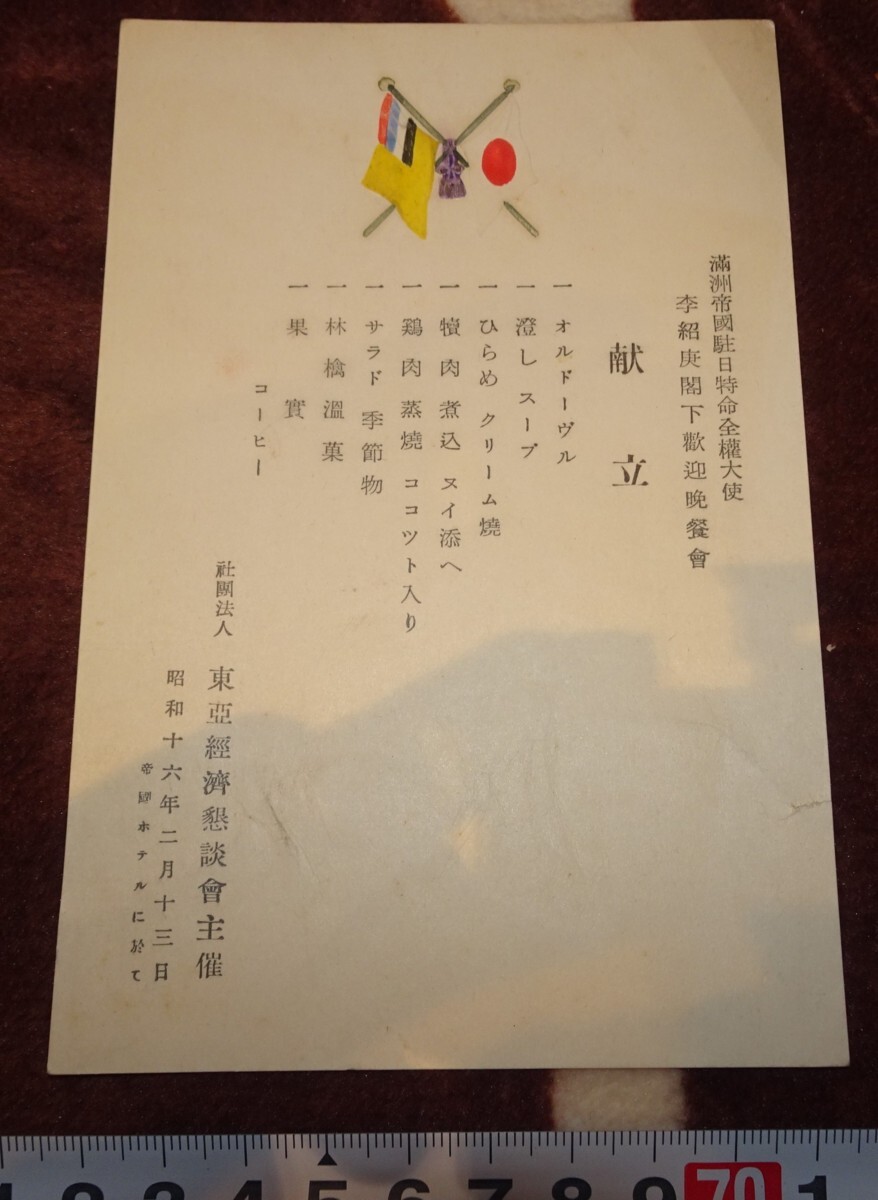 滿洲帝國駐日特命全權大使
李紹庚閣下歡迎晩餐會
献立
一 オルドーヴル
一 澄し スープ
一 ひらめ クリーム燒
一 犢肉煮込 ヌイ添へ
一 鶏肉蒸燒 ココツト入り
一 サラド 季節物
一 林檎溫菓
一 果實
コーヒー
社團法人 東亞經濟懇談會主催
昭和十六年二月十三日
帝國ホテルに於て
1 2 3 4 5 6 7 8 9 70 1